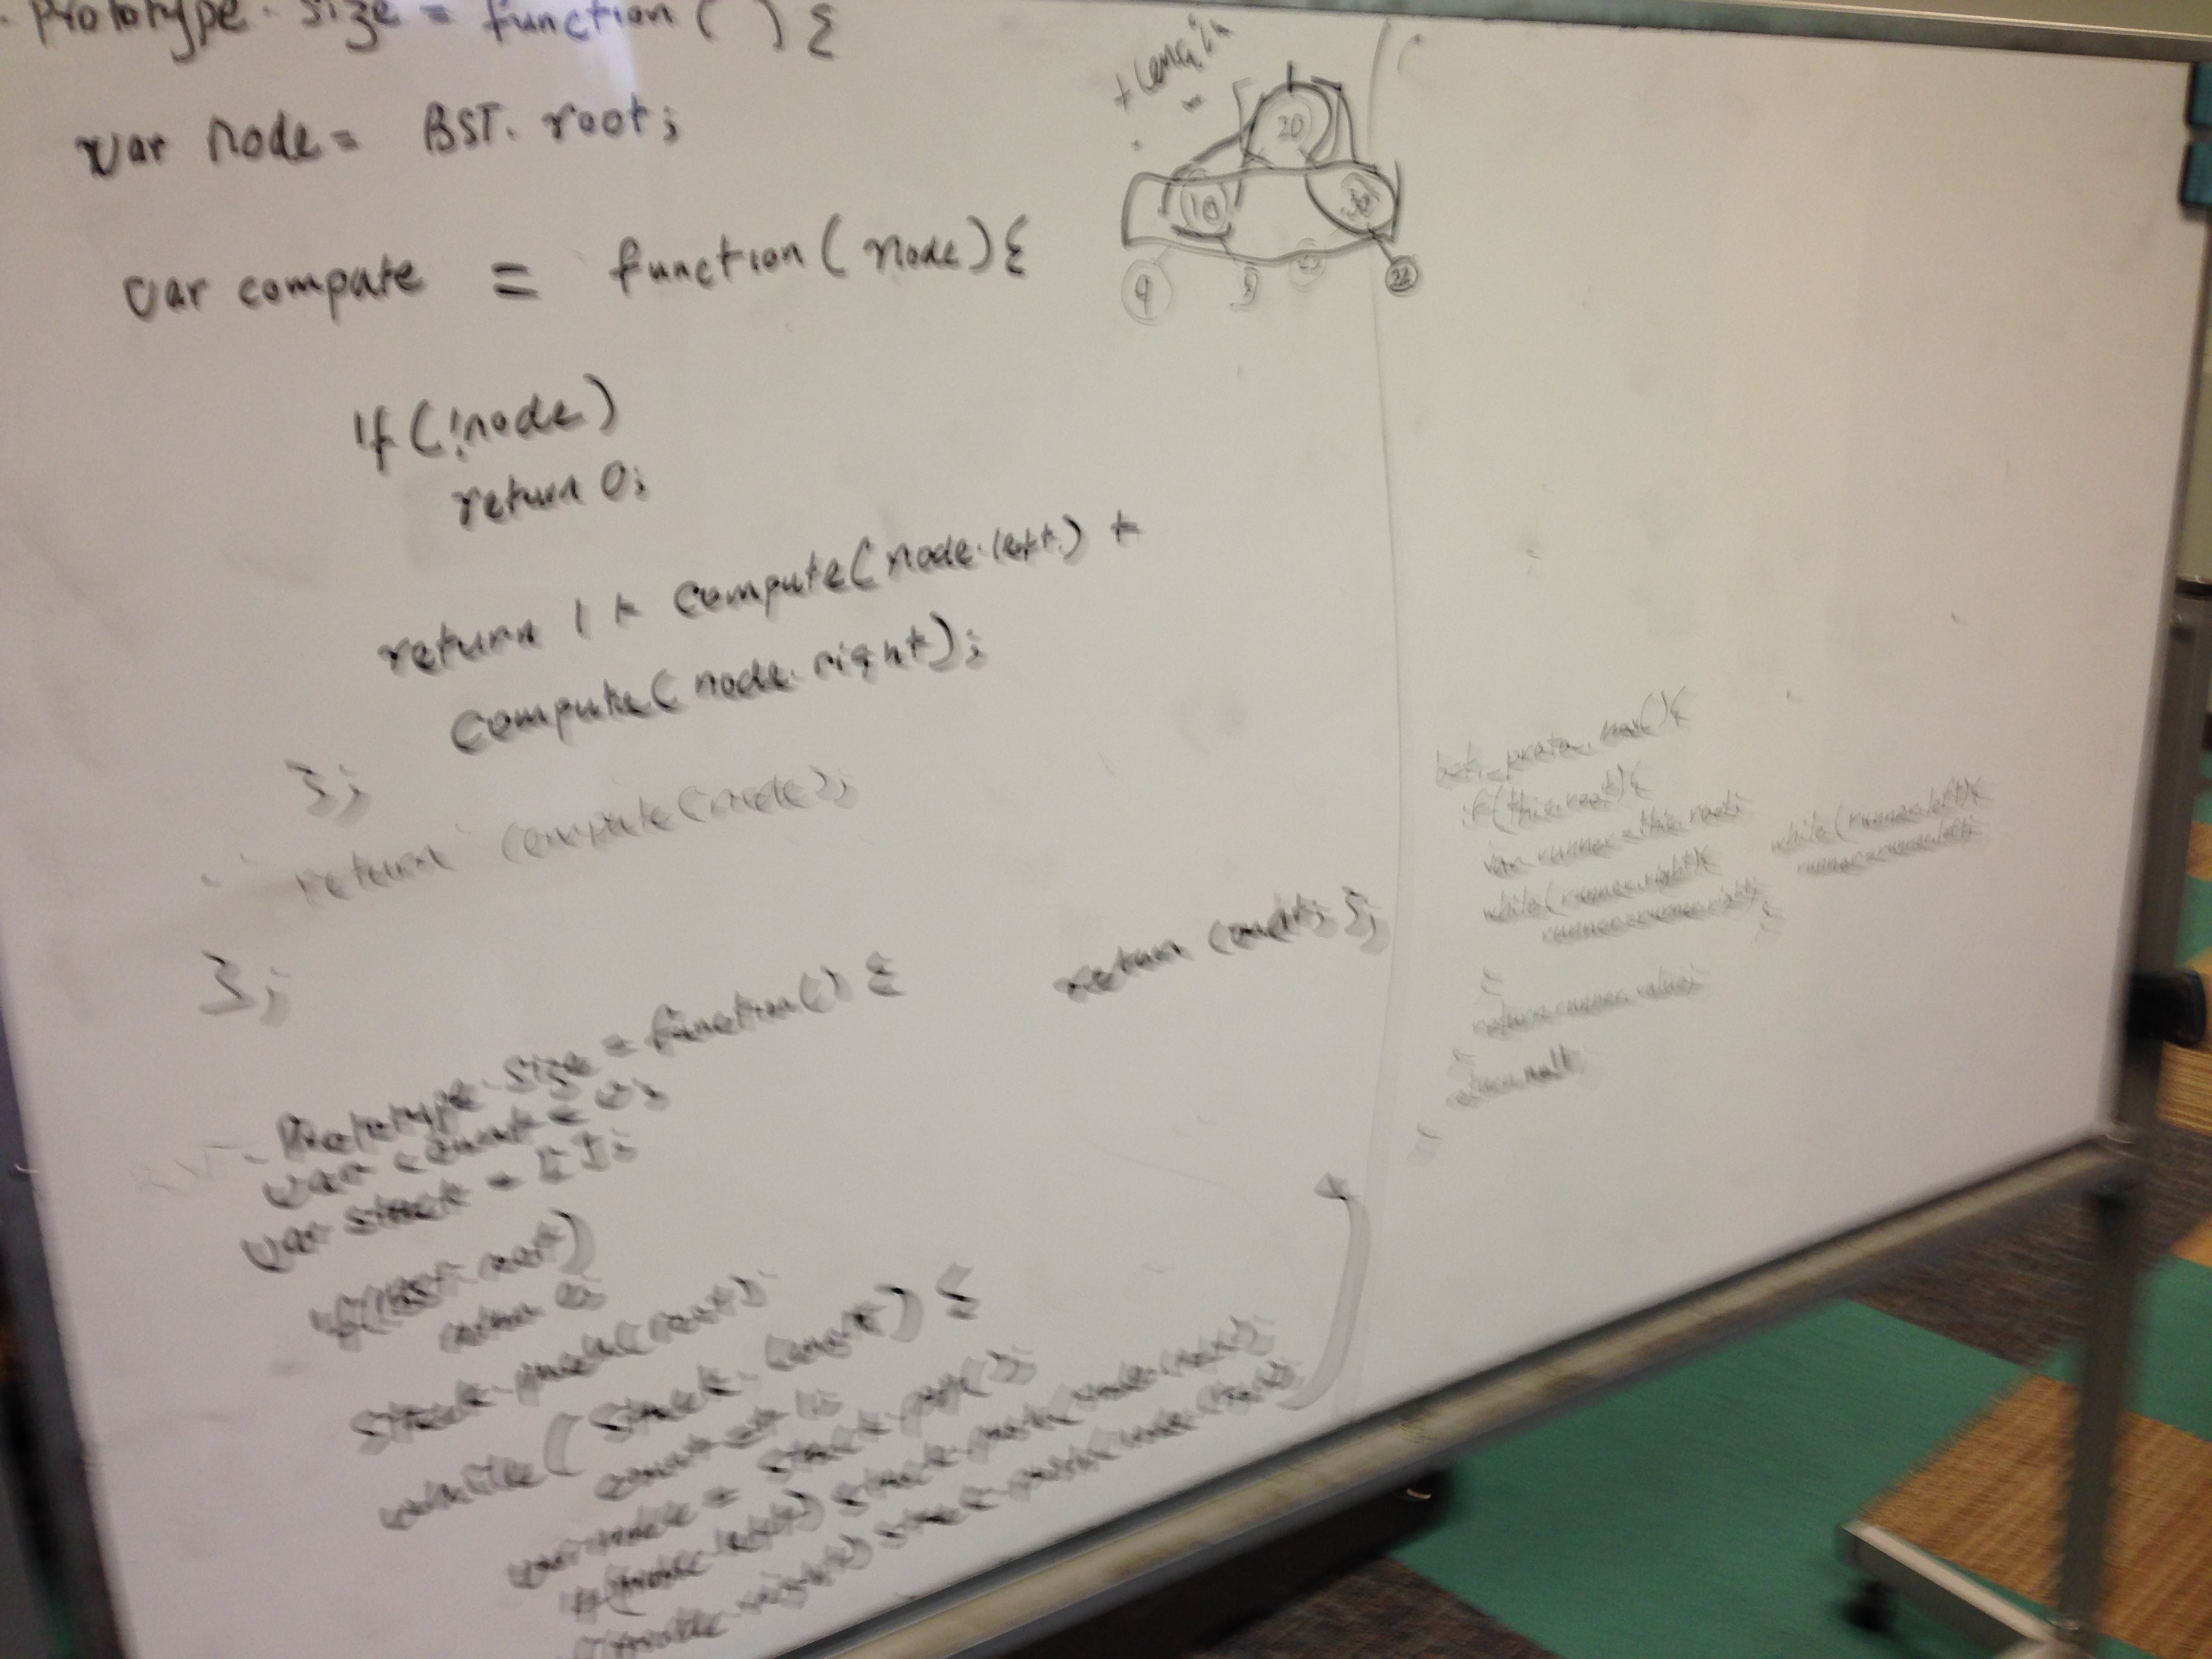 . Prototype. size = function ( ) {
var node = BST. root;
var compute = function ( node) {
if (!node)
return 0;
return 1 + compute( node.left) +
compute( node. right);
};
return compute (node);
};
. Prototype. size = function() {
var count = 0;
var stack = [ ];
if(!BST. root)
return 0;
stack. push( root);
while ( stack. length) {
count += 1;
var node = stack. pop();
if(node.left) stack. push( node.left);
if(node.right) stack. push( node.right);
return count; };
+ length
20
10
30
9
if(this.root){
var runner = this.root;
while(runner.right){
runner=runner.right;
}
while(runner.left){
runner=runner.left;
}
return runner.value;
}
return null;
}